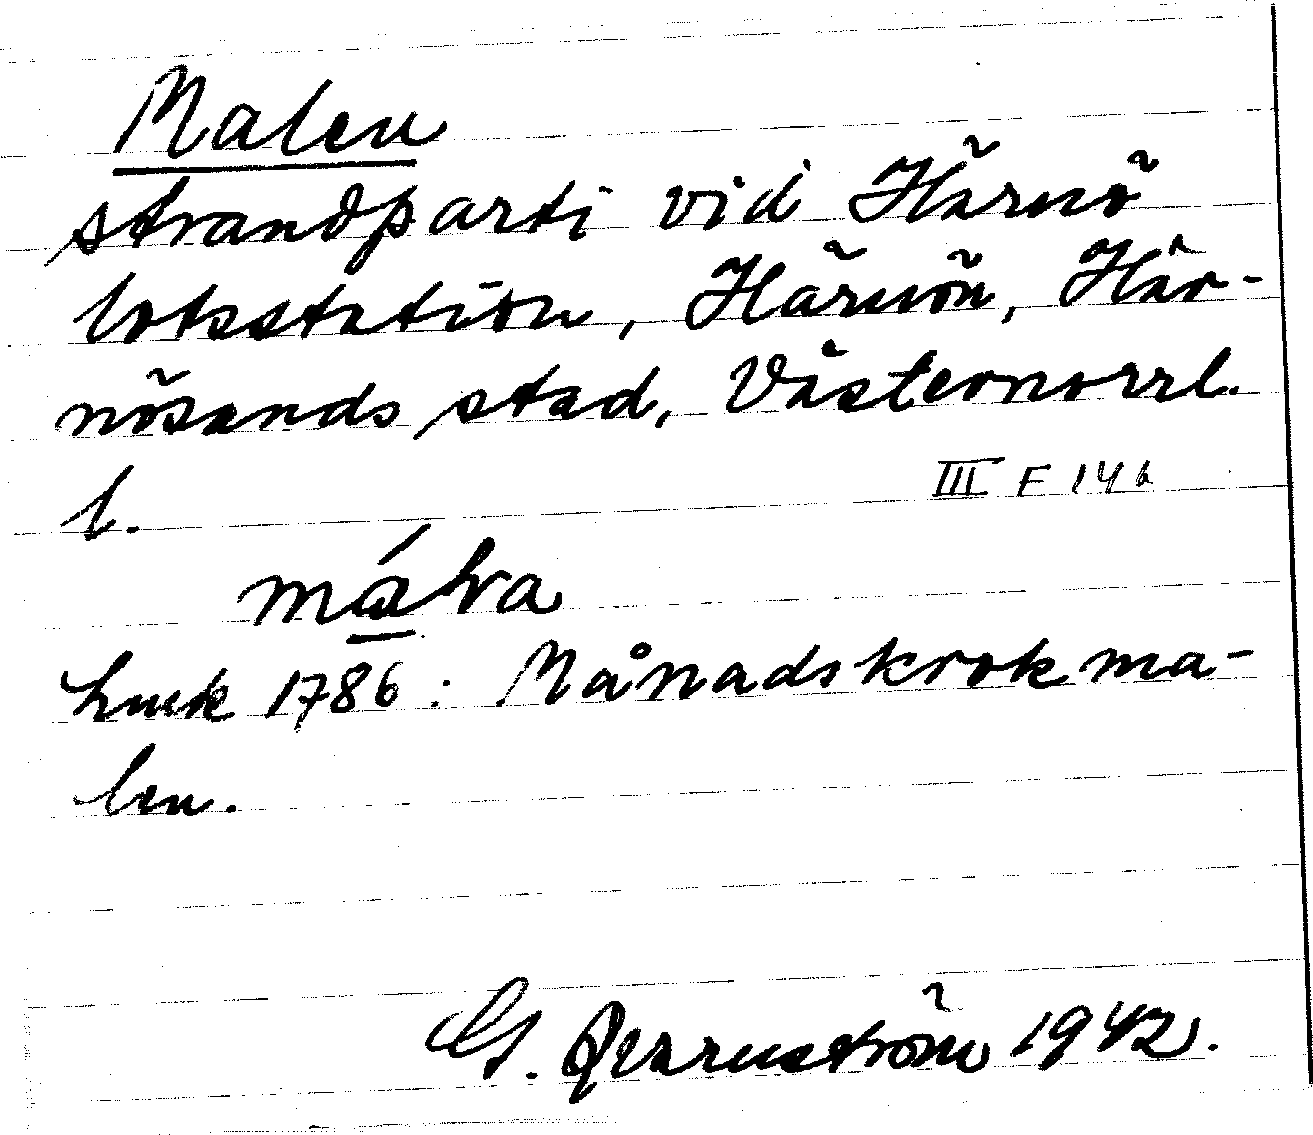 Malen
strandparti vid Härnö
lotsstation, Härnön, Här-
nösands stad, Västernorrl.
l.
III F 14 b
má̱lra
Huck 1786: Månadskrokma-
len.
G. Qvarnström 1942.